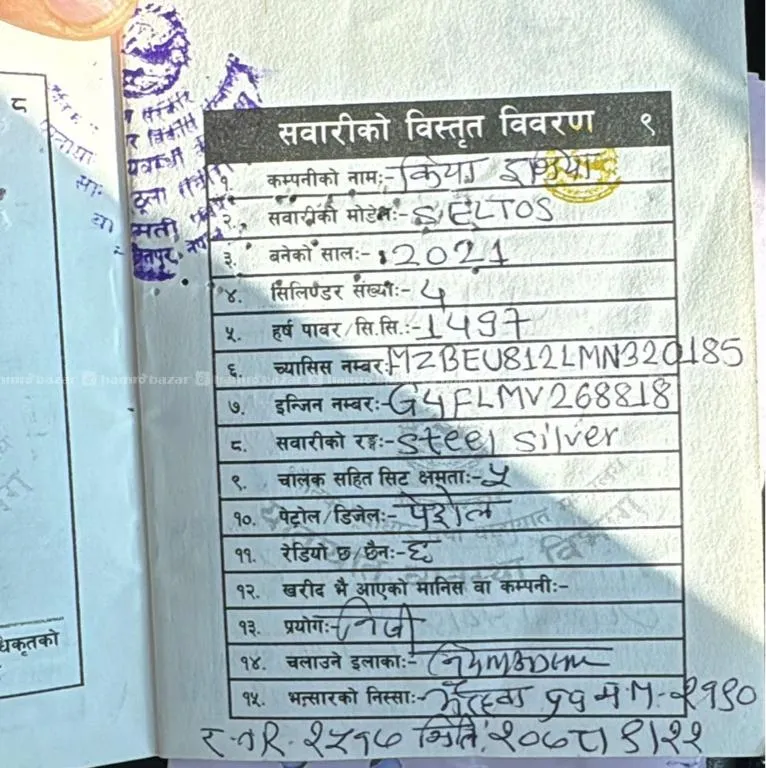 ८
सवारीको विस्तृत विवरण ९
१. कम्पनीको नाम:- किया इण्डिया
२. सवारीको मोडेल:- SELTOS
३. बनेको साल:- 2021
४. सिलिण्डर संख्या:- 4
५. हर्ष पावर/सि.सि.:- 1497
६. च्यासिस नम्बर:- MZBEU812LMN320185
hamrobazar hamrobazar
७. इन्जिन नम्बर:- G4FLMV268818
८. सवारीको रङ्ग:- steel silver
९. चालक सहित सिट क्षमता:- ५
१०. पेट्रोल/डिजेल:- पेट्रोल
११. रेडियो छ/छैन:- छ
१२. खरीद भै आएको मानिस वा कम्पनी:-
१३. प्रयोग:- निजी
१४. चलाउने इलाका:-
१५. भन्सारको निस्सा:- M-२११०
धिकृतको
र.नं R. २५१७ मिति: २०७८।९।२२